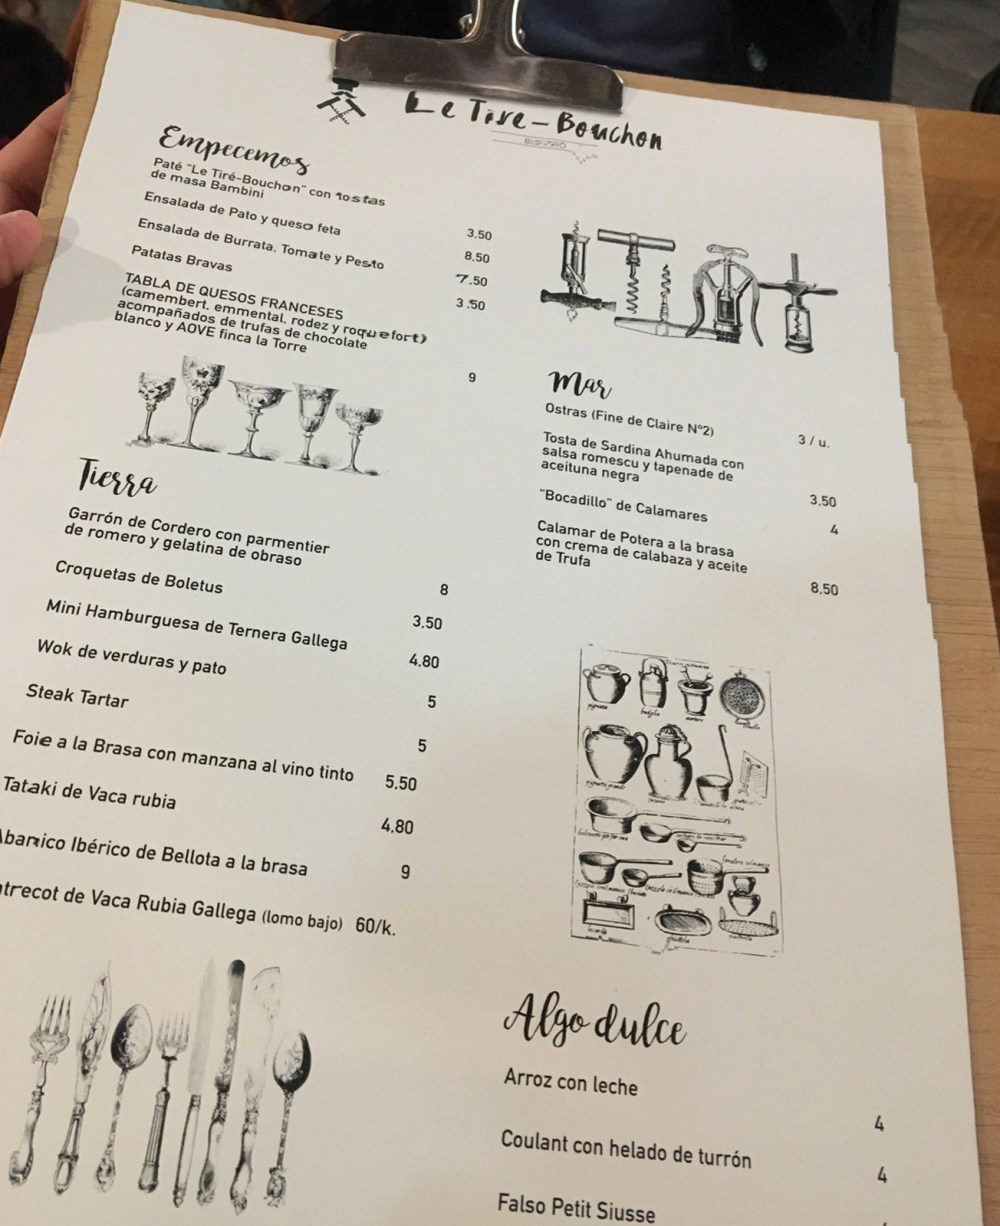 Le Tire-Bouchon
BISTRO
Empecemos
Paté "Le Tiré-Bouchon" con tostas
de masa Bambini
3.50
Ensalada de Pato y queso feta
8.50
Ensalada de Burrata, Tomate y Pesto
7.50
Patatas Bravas
3.50
TABLA DE QUESOS FRANCESES
(camembert, emmental, rodez y roquefort)
acompañados de trufas de chocolate
blanco y AOVE finca la Torre
9
Tierra
Garrón de Cordero con parmentier
de romero y gelatina de obraso
8
Croquetas de Boletus
3.50
Mini Hamburguesa de Ternera Gallega
4.80
Wok de verduras y pato
5
Steak Tartar
5
Foie a la Brasa con manzana al vino tinto
5.50
Tataki de Vaca rubia
4.80
Abanico Ibérico de Bellota a la brasa
9
ntrecot de Vaca Rubia Gallega (lomo bajo) 60/k.
Mar
Ostras (Fine de Claire Nº2)
3 / u.
Tosta de Sardina Ahumada con
salsa romescu y tapenade de
aceituna negra
3.50
"Bocadillo" de Calamares
4
Calamar de Potera a la brasa
con crema de calabaza y aceite
de Trufa
8.50
Algo dulce
Arroz con leche
4
Coulant con helado de turrón
4
Falso Petit Siusse